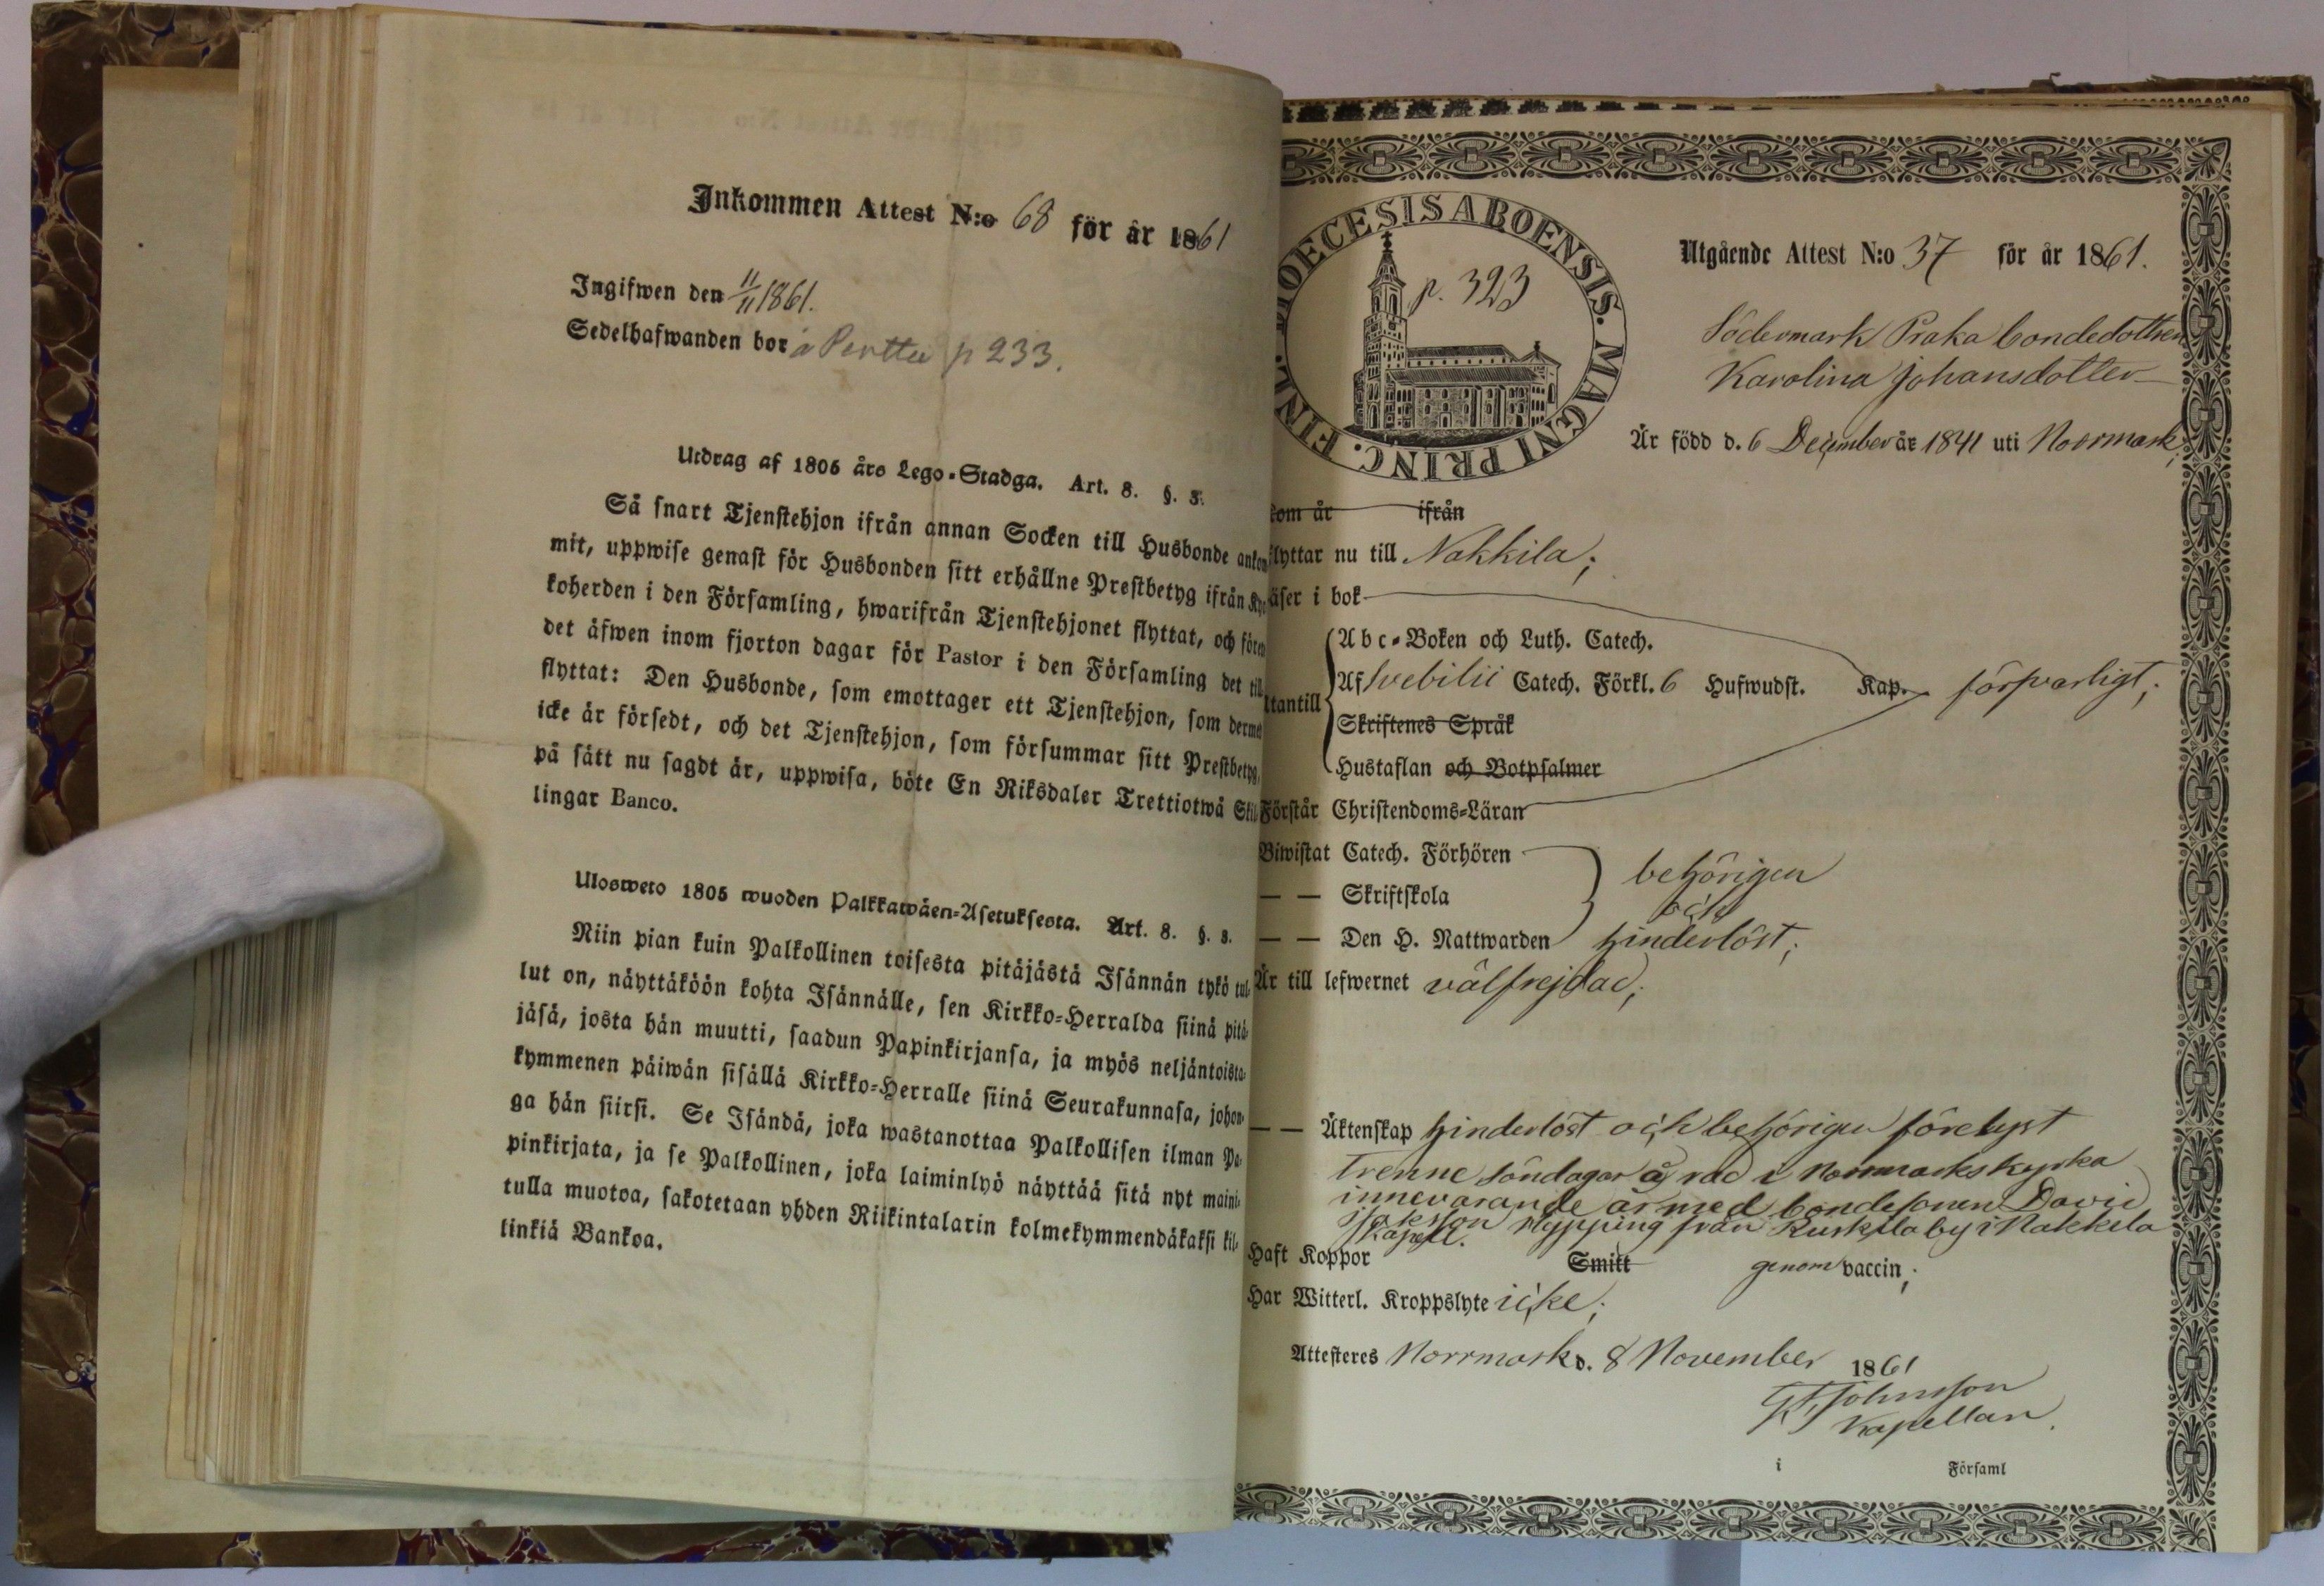 Inkommen Attest N:o 68 för år 1861
Ingifwen den 11/11 1861.
Sedelhafwanden bor å Perttu p 233.
Utdrag af 1805 års Lego-Stadga. Art. 8. §. 3.
Så snart Tjenstehjon ifrån annan Socken till Husbonde ankom
mit, uppwise genast för Husbonden sitt erhållne Prestbetyg ifrån Kyr
koherden i den Församling, hwarifrån Tjenstehjonet flyttat, och förete
det äfwen inom fjorton dagar för Pastor i den Församling det till
flyttat: Den Husbonde, som emottager ett Tjenstehjon, som dermed
icke är försedt, och det Tjenstehjon, som försummar sitt Prestbetyg,
på sätt nu sagdt är, uppwisa, böte En Riksdaler Trettiotwå Skil-
lingar Banco.
Ulosweto 1805 wuoden Palkkawäen-Asetuksesta. Art. 8. §. 3.
Niin pian kuin Palkollinen toisesta pitäjästä Isännän tykö tul-
lut on, näyttäköön kohta Isännälle, sen Kirkko-Herralda siinä pitä-
jäsä, josta hän muutti, saadun Papinkirjansa, ja myös neljäntoista-
kymmenen päiwän sisällä Kirkko-Herralle siinä Seurakunnasa, johon-
ga hän siirsi. Se Isändä, joka wastanottaa Palkollisen ilman Pa-
pinkirjata, ja se Palkollinen, joka laiminlyö näyttää sitä nyt maini-
tulla muotoa, sakotetaan yhden Riikintalarin kolmekymmendäkaksi kil-
linkiä Bankoa.
DIOECESIS ABOENSIS. MAGNI PRINC. FINL.
p. 323
Utgående Attest N:o 37 för år 1861.
Södermark Praka bondedottren
Karolina Johansdotter
Är född d. 6 December år 1841 uti Norrmark;
kom år ifrån
flyttar nu till Nakkila;
äser i bok
Abc-Boken och Luth. Catech.
Af Svebilii Catech. Förkl. 6 Hufwudst. Kap. försvarligt;
ttantill
Skriftenes Språk
Hustaflan och Botpsalmer
Förstår Christendoms-Läran
Biwistat Catech. Förhören behörigen
— — Skriftskola och
— — Den H. Nattwarden hinderlöst;
Är till lefwernet välfrejdad;
— — Äktenskap hinderlöst och behörigen förelyst
trenne söndagar å rad i Norrmarks kyrka
innevarande år med bondesonen David
Isaksson Nypping från Ruskila by i Nakkila
Kapell.
Haft Koppor Smitt genom vaccin;
Har Witterl. Kroppslyte icke;
Attesteres Norrmark d. 8 November 1861
Johnsson
Kapellan.
i Församl